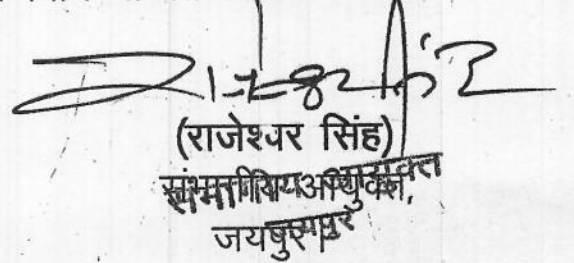 (राजेश्वर सिंह)
संभागीय आयुक्त,
जयपुर